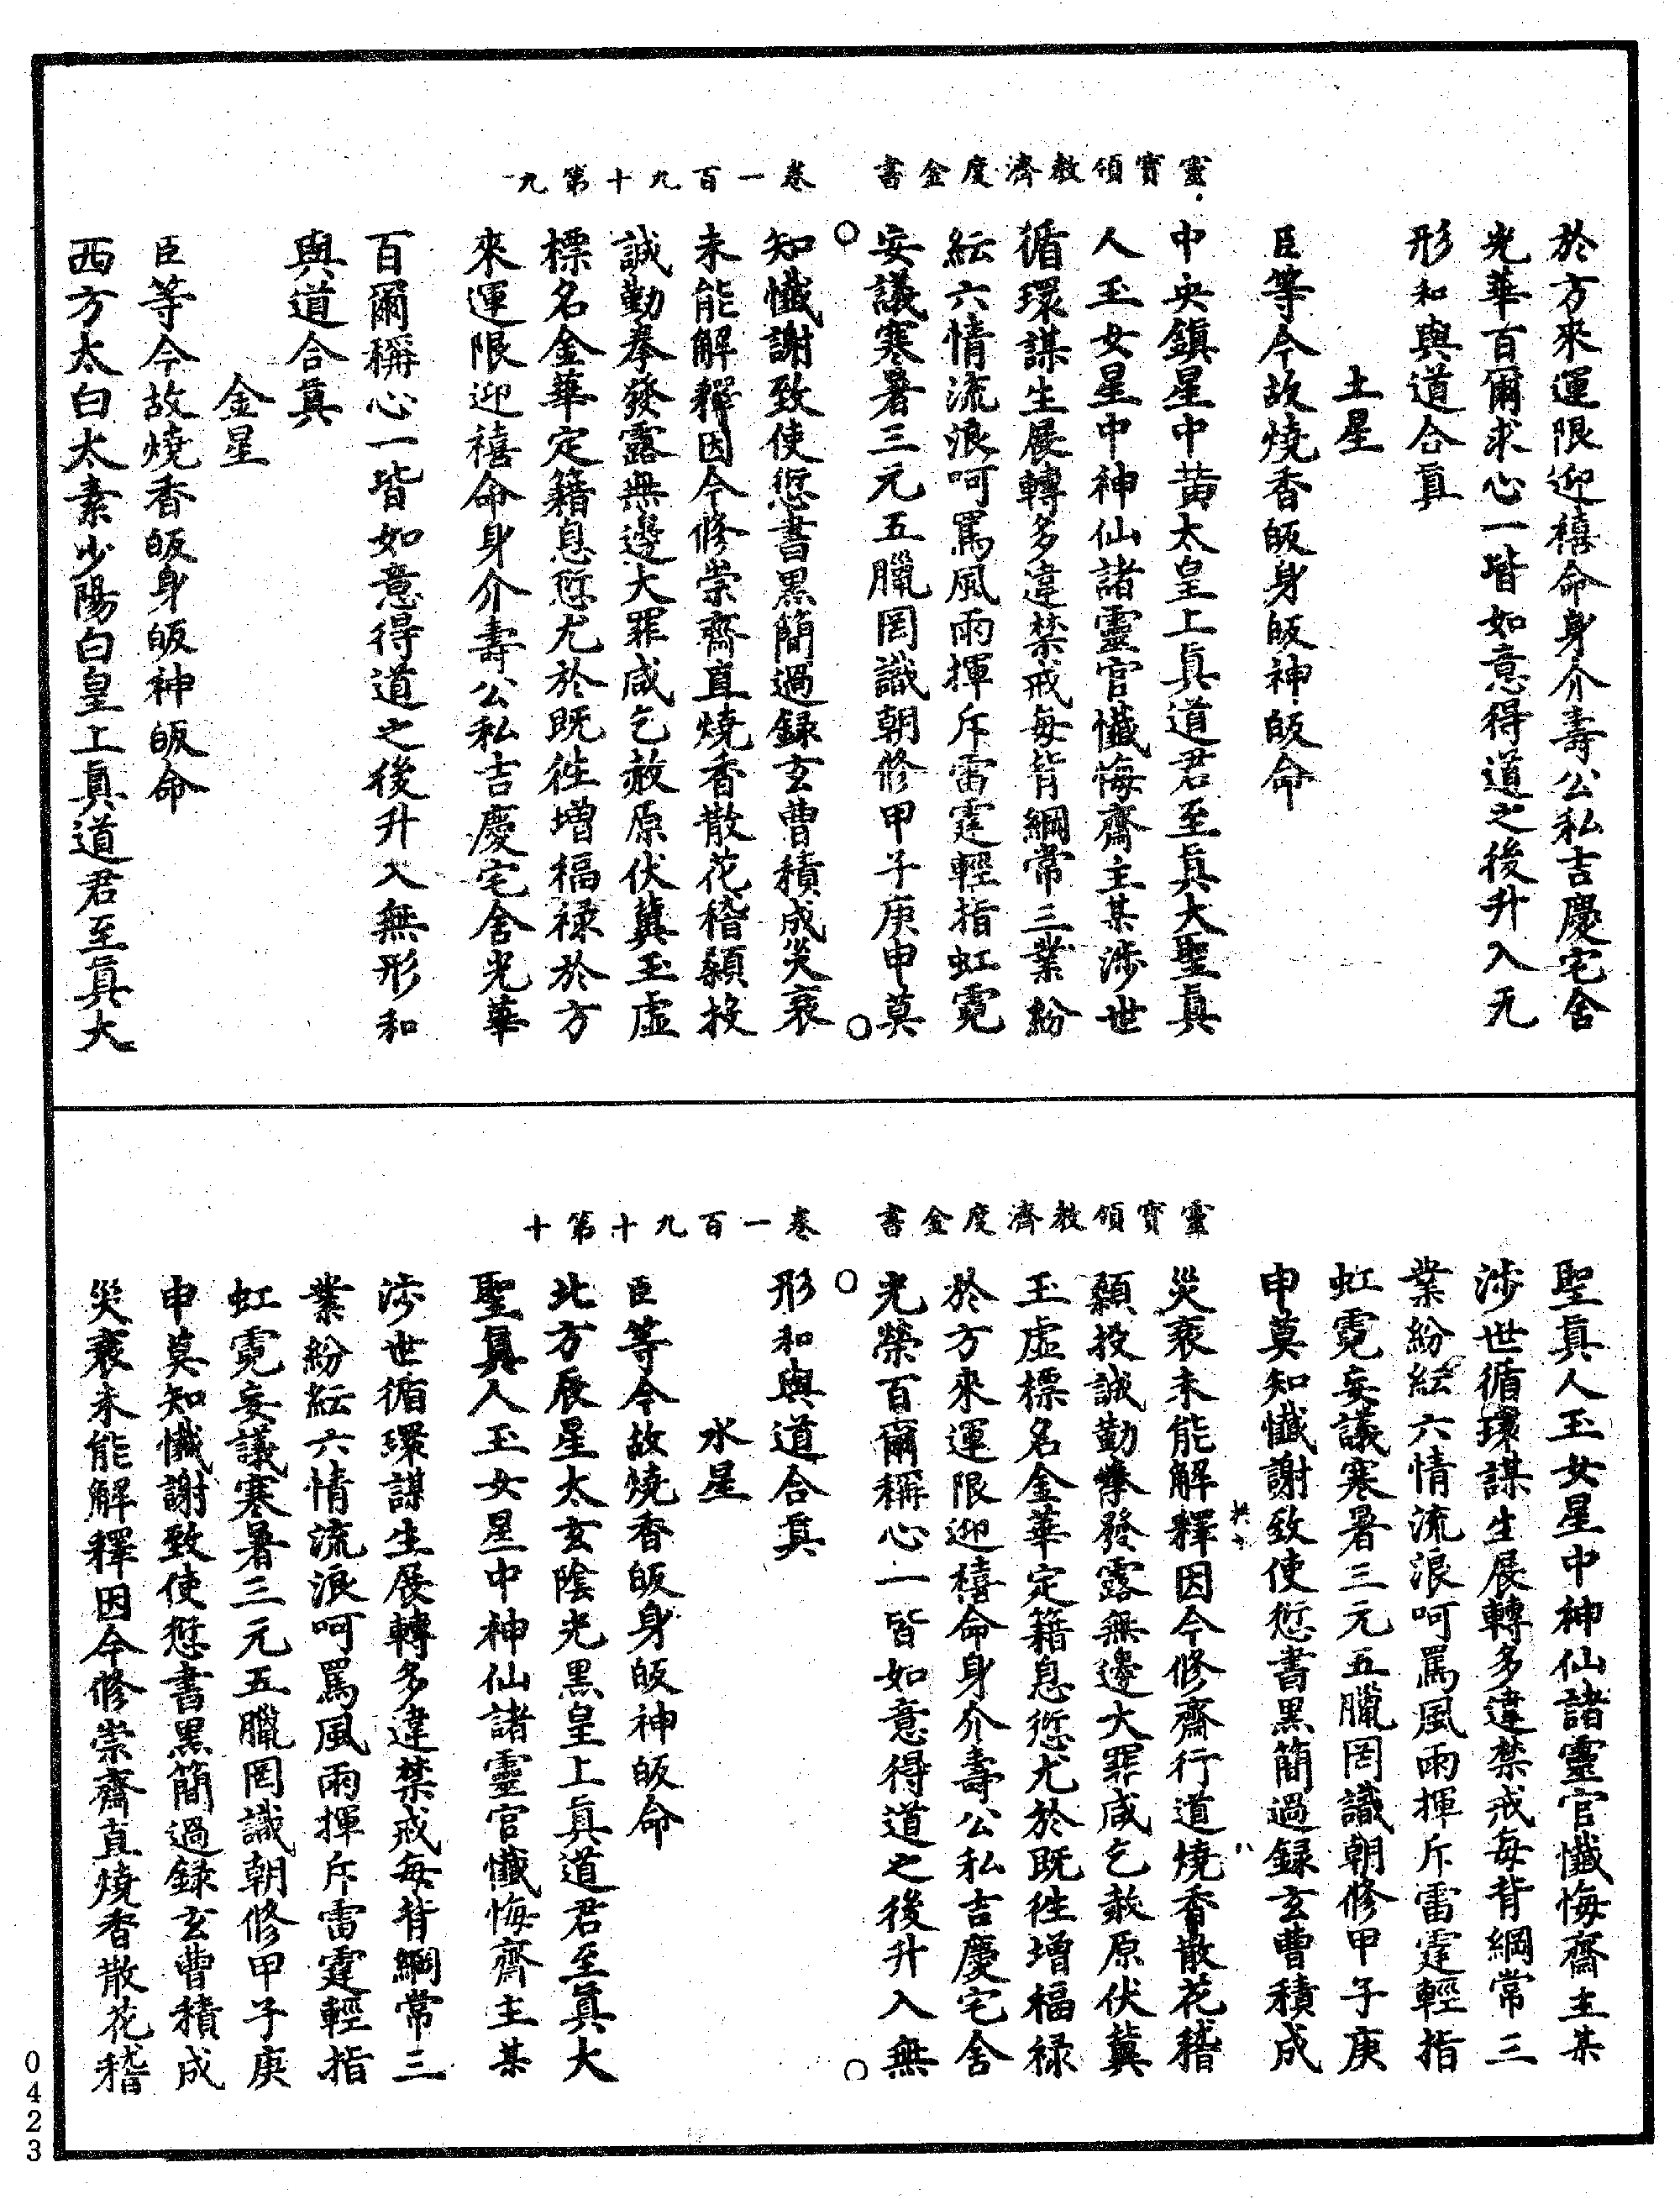 靈寶領教濟度金書　卷一百九十第九
於方來運限迎禧命身介壽公私吉慶宅舍
光華百爾求心一皆如意得道之後升入无
形和與道合眞
土星
臣等今故燒香皈身皈神皈命
中央鎮星中黃太皇上眞道君至眞大聖眞
人玉女星中神仙諸靈官懺悔齋主某涉世
循環謀生展轉多違禁戒每背綱常三業紛
紜六情流浪呵罵風雨揮斥雷霆輕指虹霓
妄議寒暑三元五臘罔識朝修甲子庚申莫
知懺謝致使愆書黑簡過録玄曹積成災衰
未能解釋因今修崇齋直燒香散花稽顙投
誠勤拳發露無邊大罪咸乞赦原伏冀玉虛
標名金華定籍息愆尤於既徃增福禄於方
來運限迎禧命身介壽公私吉慶宅舍光華
百爾稱心一皆如意得道之後升入無形和
與道合眞
金星
臣等今故燒香皈身皈神皈命
西方太白太素少陽白皇上眞道君至眞大
靈寶領教濟度金書　卷一百九十第十
聖眞人玉女星中神仙諸靈官懺悔齋主某
涉世循環謀生展轉多違禁戒每背綱常三
業紛紜六情流浪呵罵風雨揮斥雷霆輕指
虹霓妄議寒暑三元五臘罔識朝修甲子庚
申莫知懺謝致使愆書黑簡過録玄曹積成
災衰未能解釋因今修齋行道燒香散花稽
顙投誠勤拳發露無邊大罪咸乞赦原伏冀
玉虛標名金華定籍息愆尤於既徃增福禄
於方來運限迎禧命身介壽公私吉慶宅舍
光榮百爾稱心一皆如意得道之後升入無
形和與道合眞
水星
臣等今故燒香皈身皈神皈命
北方辰星太玄陰光黑皇上眞道君至眞大
聖眞人玉女星中神仙諸靈官懺悔齋主某
涉世循環謀生展轉多違禁戒每背綱常三
業紛紜六情流浪呵罵風雨揮斥雷霆輕指
虹霓妄議寒暑三元五臘罔識朝修甲子庚
申莫知懺謝致使愆書黑簡過録玄曹積成
災衰未能解釋因今修崇齋直燒香散花稽
0423